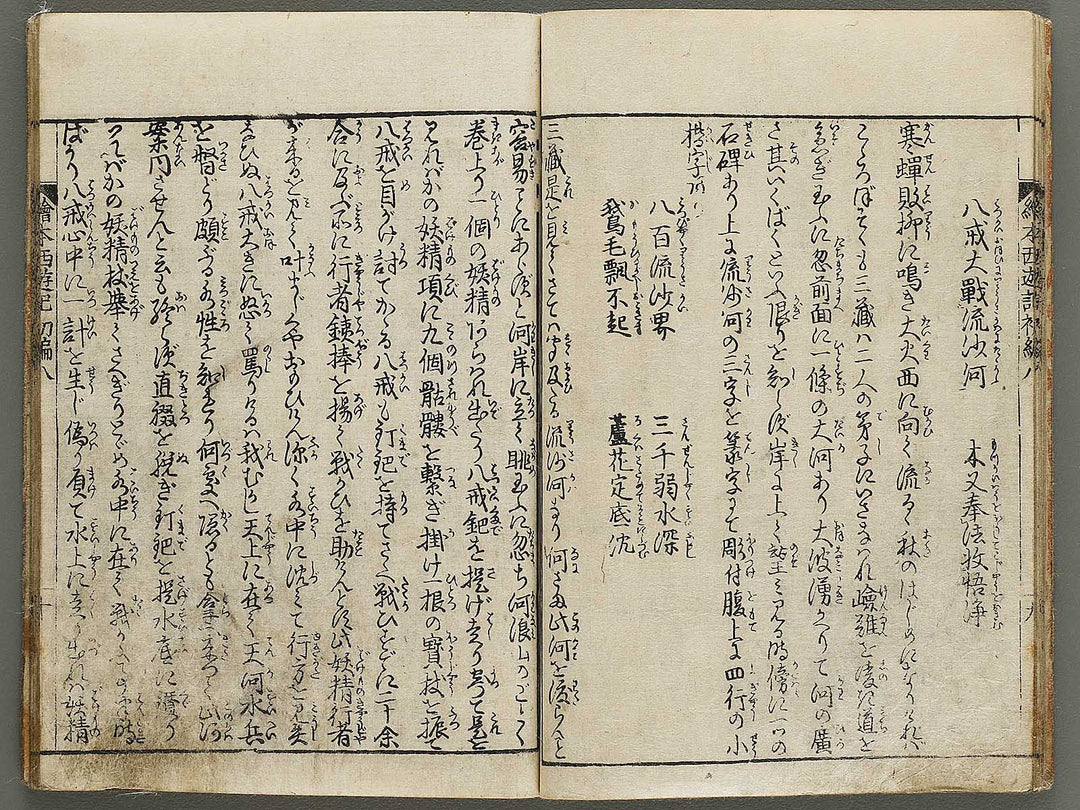 八戒大戰流沙河　木叉奉法收悟浄
寒蟬敗柳に鳴き大火西に向て流るゝ秋のはじめになりけれバ
こゝろぼそくも三藏ハ二人の弟子にいさまはれ嶮難を凌ぎ道を
急ぎ玉ふに忽前面に一條の大河あり大波湧かへりて河の廣
さ其いくばくといふ限りを知らず岸に上て望ミ見る時傍に一つの
石碑あり上に流沙河の三字を篆字にて彫付腹上に四行の小
楷字
八百流沙界　三千弱水深
鵞毛飄不起　蘆花定底沈
三藏是を見てさてハ及たる流沙河なり何さま此河を渡らんと
容易くにあらずと河岸に立て眺玉ふに忽ち河浪山のごとく
巻上り一個の妖精あらわれ出たり八戒鈀を提げ走りよつて是を
見れバかの妖精項に九個骷髏を繋ぎ掛け一根の寶杖を振て
八戒を目がけ討てかゝる八戒も釘鈀を持てさゝへ戰ひすでに二十余
合に及ぶ所に行者鉄捧を揚て戰かひを助けんとす此妖精行者
が来るを見て叶はじとや思ひけん深く水中に沈ミて行方を見失
ひぬ八戒大きに怒て罵りけるハ我むかし天上に在て天河水兵
を督どり頗ぶる水性を知れり何處へ隠るとも
案内させんと云も終らず直綴を脱ぎ釘鈀を提水底に潜り
入けれバかの妖精杖擧てさへぎりとゞめ水中に在て戰かふ
ばかり八戒心中に一計を生じ偽り負て水上に走り出れバ妖精
繪本西遊記初編八